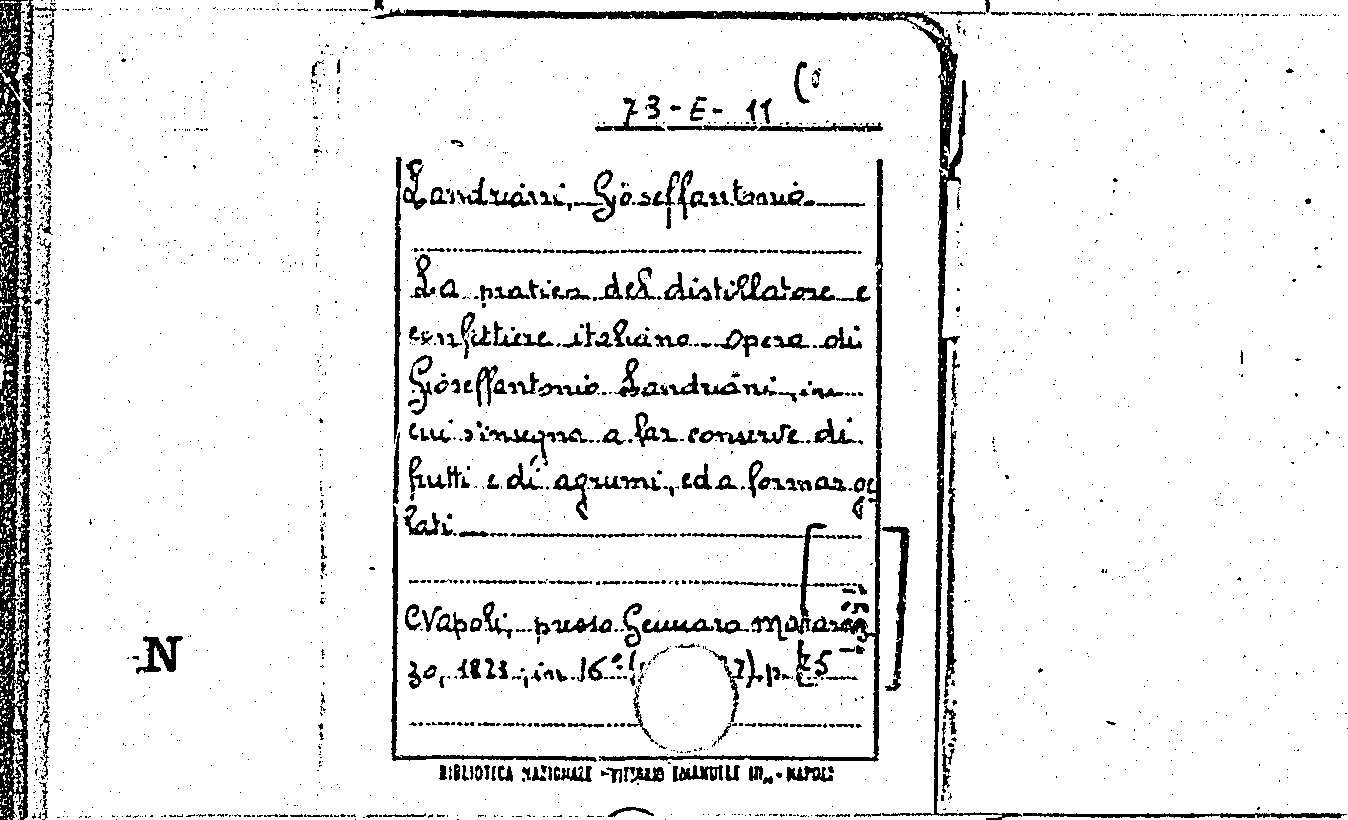 73-E-11
Landriani, Gioseffantonio
La pratica del distillatore e
confettiere italiano. Opera di
Gioseffantonio Landriani, in
cui s'insegna a far conserve di
frutti e di agrumi, ed a formar ge
lati
Napoli, presso Gennaro Mataraz
zo, 1821, in 16° ( 7). p. 25
N
BIBLIOTECA NAZIONALE - VITTORIO EMANUELE III - NAPOLI